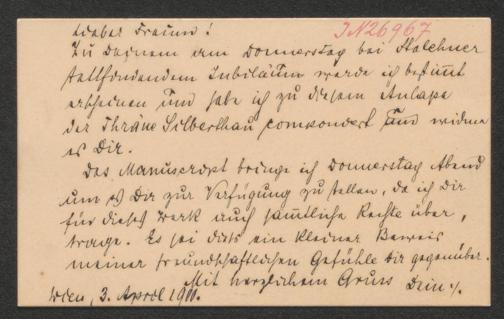 Lieber Freund!
J.N. 26967
Zu Deinem am Donnerstag bei Stalehner
stattfindendem Jubiläum werde ich bestimmt
erscheinen und habe ich zu diesem Anlaße
der Thräne Silberthau componiert und widme
es Dir.
Das Manuscript bringe ich Donnerstag Abend
um es Dir zur Verfügung zu stellen, da ich Dir
für dieses Werk auch sämtliche Rechte über,
trage. Es sei dies ein kleiner Beweis
meiner freundschaftlichen Gefühle dir gegenüber.
Mit herzlichem Gruss Dein
Wien, 3. April 1911.